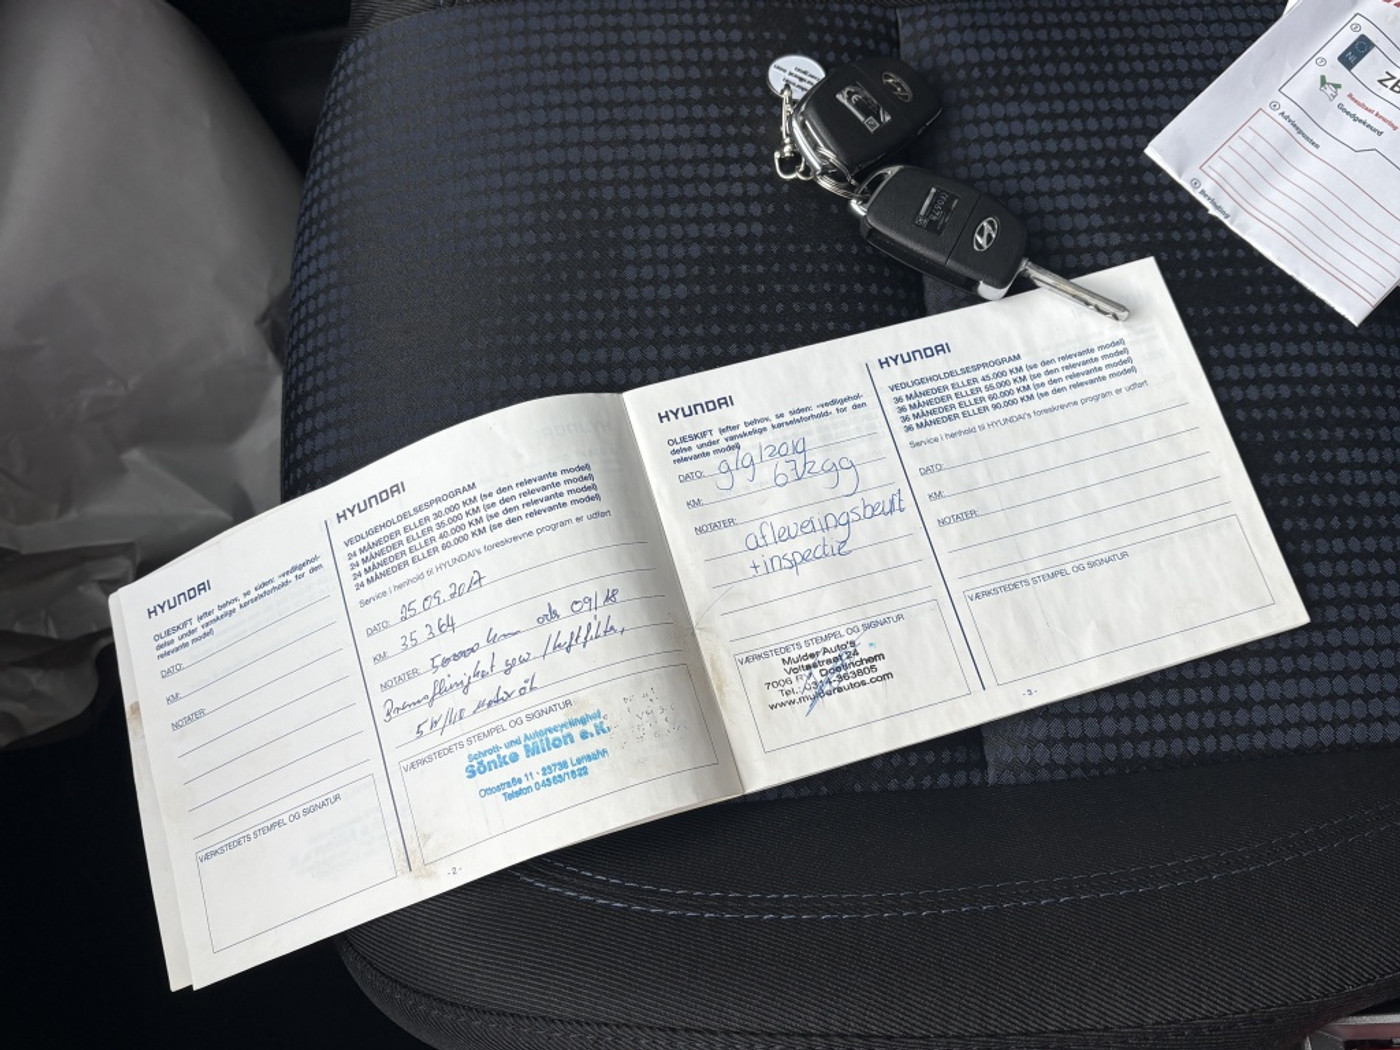 HYUNDAI
OLIESKIFT (efter behov, se siden: »vedligehol-
delse under vanskelige kørselsforhold« for den
relevante model)
DATO:
KM:
NOTATER:
VÆRKSTEDETS STEMPEL OG SIGNATUR
HYUNDAI
VEDLIGEHOLDELSESPROGRAM
24 MÅNEDER ELLER 30.000 KM (se den relevante model)
24 MÅNEDER ELLER 35.000 KM (se den relevante model)
24 MÅNEDER ELLER 40.000 KM (se den relevante model)
24 MÅNEDER ELLER 60.000 KM (se den relevante model)
Service i henhold til HYUNDAI's foreskrevne program er udført
DATO: 25.09.2017
KM: 35364
NOTATER: 50000 km 09/18
5W/40 Motoröl
VÆRKSTEDETS STEMPEL OG SIGNATUR
Schrott- und Autorecyclinghof
Sönke Milon e.K.
Ottostraße 11 · 23738 Lensahn
Telefon 04363/1822
- 2 -
HYUNDAI
OLIESKIFT (efter behov, se siden: »vedligehol-
delse under vanskelige kørselsforhold« for den
relevante model)
DATO: 9/9/2019
KM: 67299
NOTATER: afleveringsbeurt
+inspectie
VÆRKSTEDETS STEMPEL OG SIGNATUR
Mulder Auto's
Voltastraat 24
7006 Doetinchem
Tel.: 0314-363805
www.mulderautos.com
HYUNDAI
VEDLIGEHOLDELSESPROGRAM
36 MÅNEDER ELLER 45.000 KM (se den relevante model)
36 MÅNEDER ELLER 55.000 KM (se den relevante model)
36 MÅNEDER ELLER 60.000 KM (se den relevante model)
36 MÅNEDER ELLER 90.000 KM (se den relevante model)
Service i henhold til HYUNDAI's foreskrevne program er udført
DATO:
KM:
NOTATER:
VÆRKSTEDETS STEMPEL OG SIGNATUR
- 3 -
NL
Resultaat keuring
Goedgekeurd
Adviespunten
Bevinding